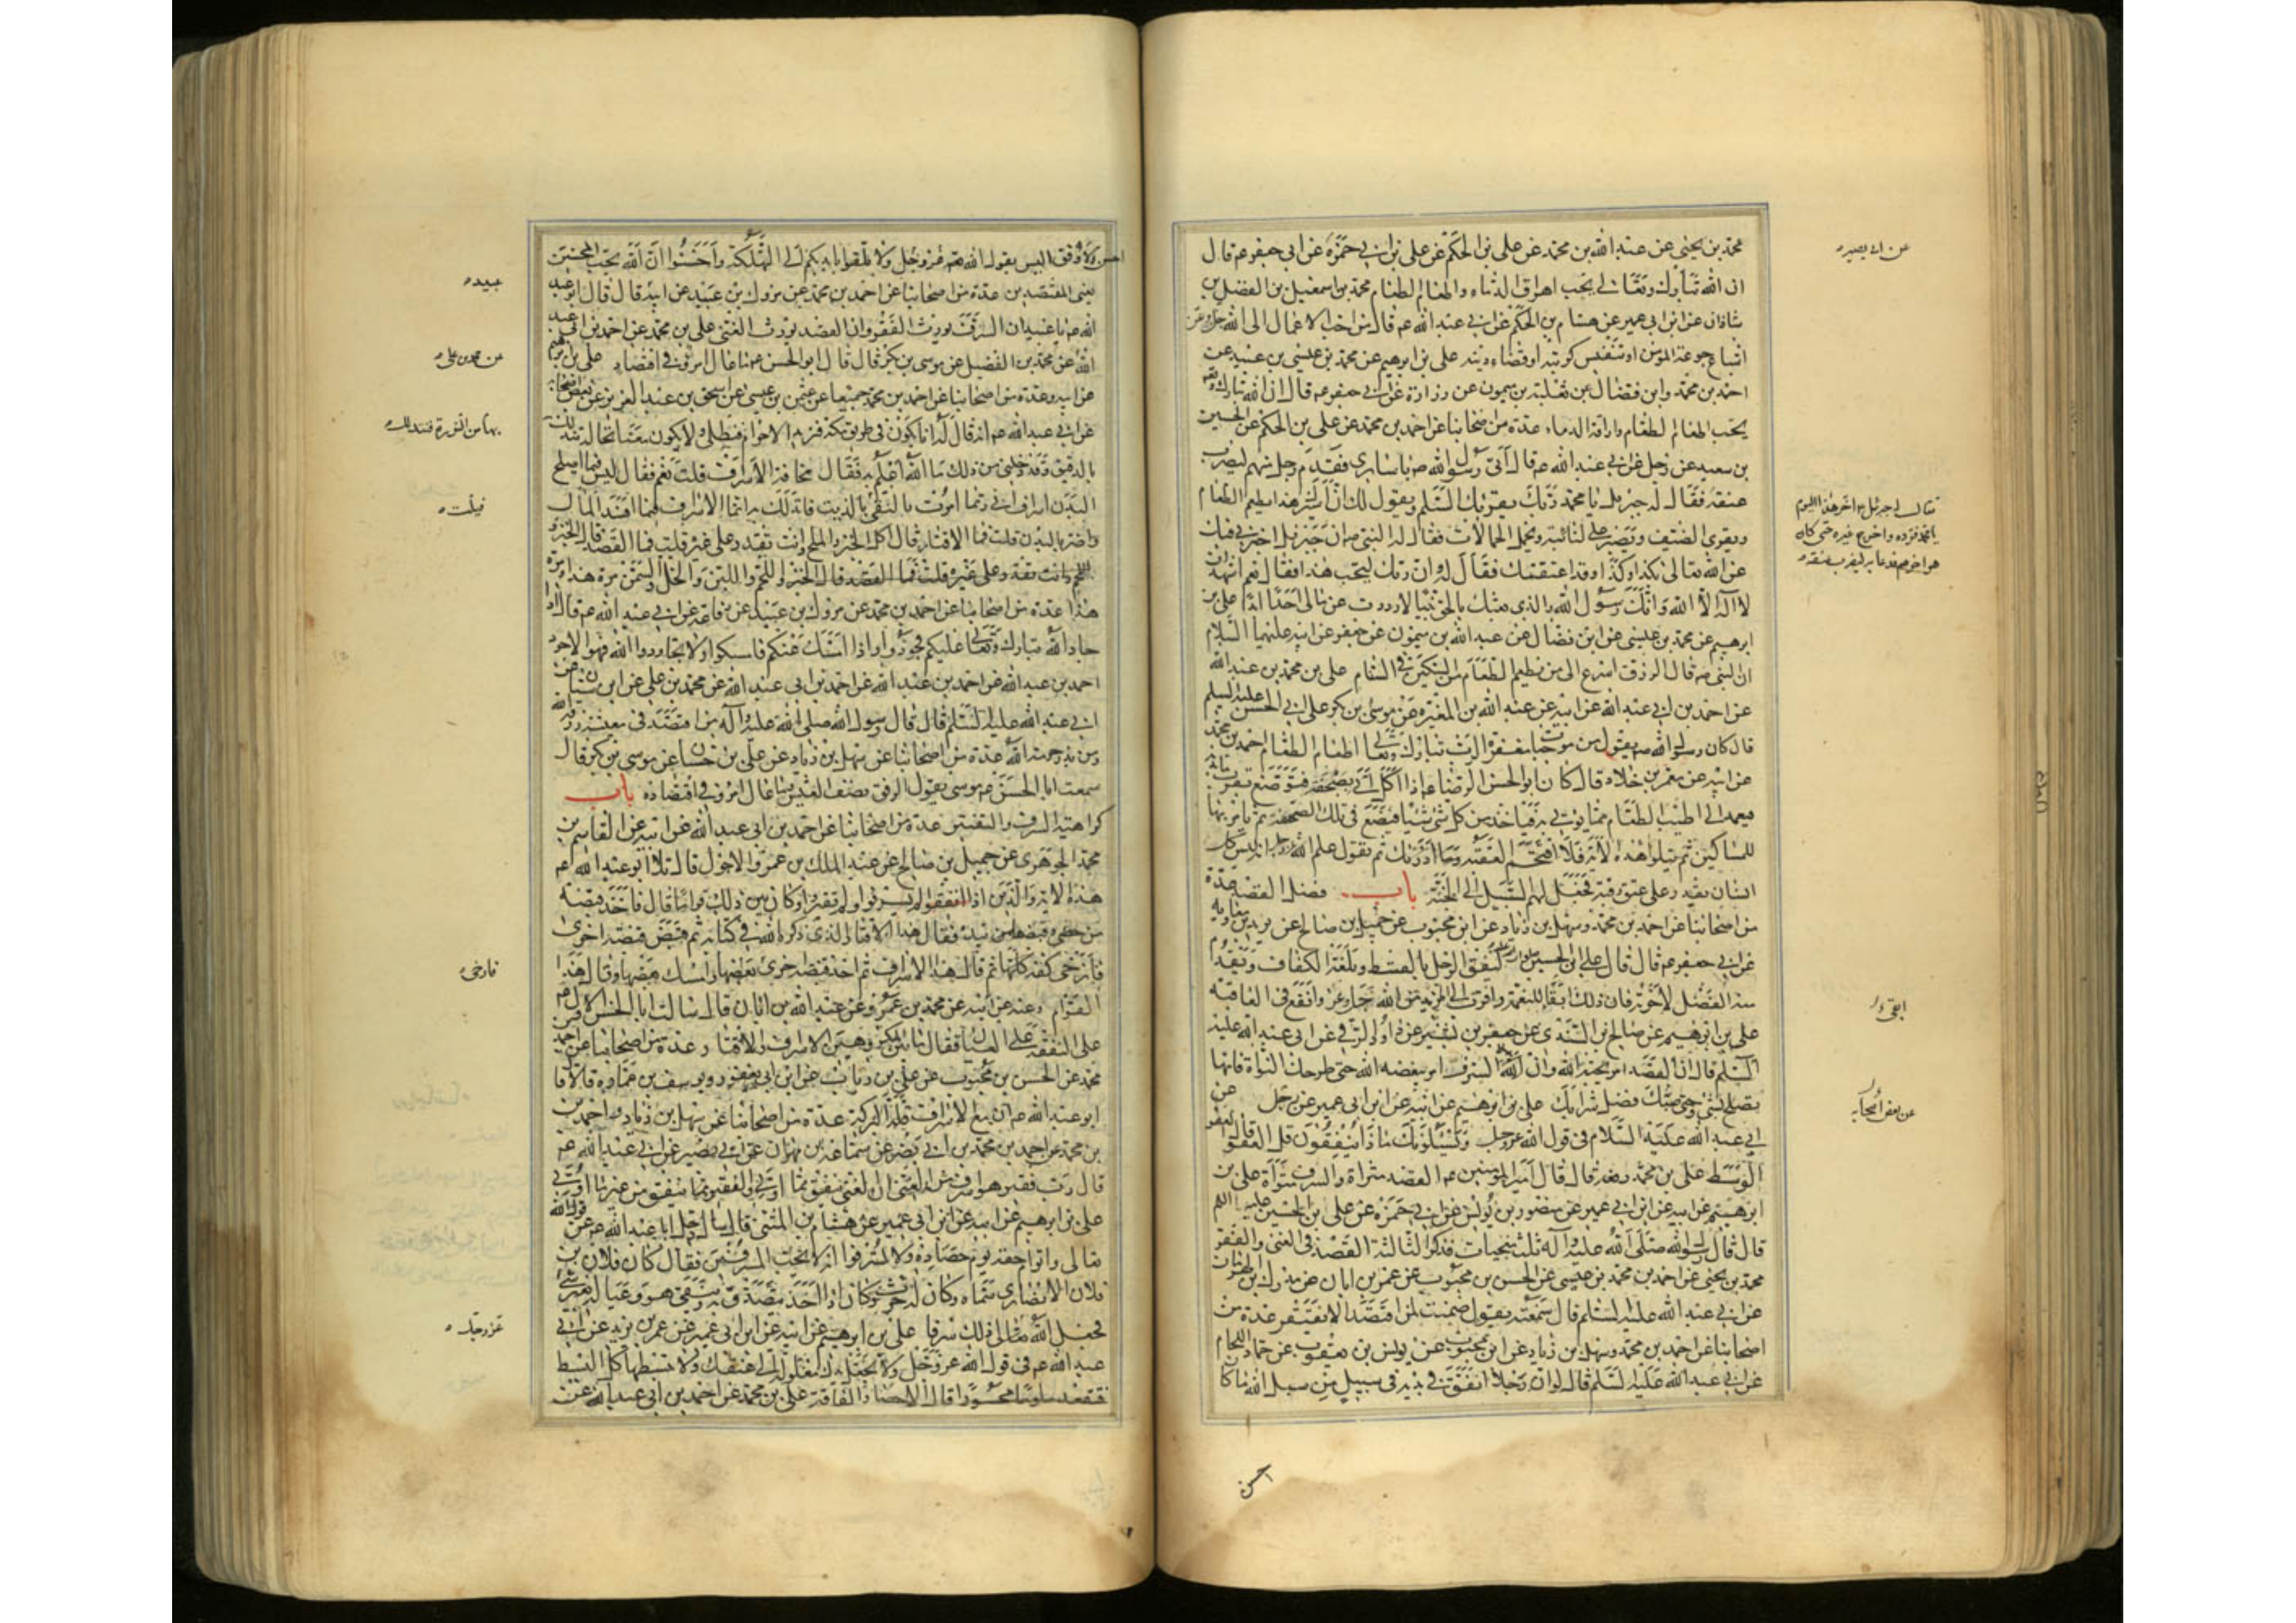 محمد بن يحيى عن عبد الله بن محمد عن علي بن الحكم عن علي بن ابي حمزة عن ابي جعفر عم قال
عن ابي بصير
ان الله تبارك وتعالى يحب اهراق الدماء واطعام الطعام محمد بن اسمعيل بن الفضل بن
شاذان عن ابن ابي عمير عن هشام بن الحكم عن ابي عبد الله عم قال من احب الاعمال الى الله
اشباع جوعة المؤمن او تنفيس كربته او قضاء دينه علي بن ابرهيم عن محمد بن عيسى بن عبيد عن
احمد بن محمد وابن فضال عن ثعلبة بن ميمون عن زرارة عن ابي جعفر عم قال ان الله تبارك وتعا
يحب اطعام الطعام واراقة الدماء عدة من اصحابنا عن احمد بن محمد عن علي بن الحكم عن الحسين
بن سعيد عن رجل عن ابي عبد الله عم قال اتى رسول الله ص باسارى فقدم رجل منهم ليضرب
عنقه فقال له جبريل يا محمد ربك يقرئك السلم ويقول لك ان اسيرك هذا يطعم الطعام
ويقري الضيف ويصبر على النائبة ويحمل الحمالات فقال له النبي ص ان جبريل اخبرني فيك
عن الله تعالى بكذا وكذا وقد اعتقتك فقال له وان ربك ليحب هذا فقال نعم فقال اشهد ان
لا اله الا الله وانك رسول الله والذي بعثك بالحق نبيا لا رددت عن مالي احدا ابدا علي بن
ابرهيم عن محمد بن عيسى عن ابن فضال عن عبد الله بن ميمون عن جعفر عن ابيه عليهما السلام
ان النبي ص قال الرزق اسرع الى من يطعم الطعام من السكين في السنام علي بن محمد بن عبد الله
عن احمد بن ابي عبد الله عن ابيه عن عبد الله بن المغيرة عن موسى بن بكر عن ابي الحسن عليه السلم
قال كان رسول الله ص يقول من موجبات مغفرة الرب تبارك وتعالى اطعام الطعام احمد بن محمد
عن ابيه عن معمر بن خلاد قال كان ابو الحسن الرضا عم اذا اكل اتي بصحفة فتوضع بقرب مائدته
فيعمد الى اطيب الطعام مما يؤتى به فياخذ من كل شئ شيئا فيضع في تلك الصحفة ثم يامر بها
للمساكين ثم يتلو هذه الاية فلا اقتحم العقبة وما ادريك ثم يقول علم الله عز وجل انه ليس كل
انسان يقدر على عتق رقبة فجعل لهم السبيل الى الجنة باب فضل القصد عدة
من اصحابنا عن احمد بن محمد وسهل بن زياد عن ابن محبوب عن جميل بن صالح عن بريد بن معاوية
عن ابي جعفر عم قال قال علي بن الحسين لينفق الرجل بالقسط وبلغة الكفاف ويقدم
منه الفضل لاخرته فان ذلك ابقا للنعمة واقرب الى المزيد من الله جل وعز وانفع في العاقبة
علي بن ابرهيم عن صالح بن السندي عن جعفر بن بشير عن داود الرقي عن ابي عبد الله عليه
السلم قال ان القصد امر يحبه الله وان السرف امر يبغضه الله حتى طرحك النواة فانها
تصلح لشئ وحتى صبك فضل شرابك علي بن ابرهيم عن ابيه عن ابن ابي عمير عن رجل عن
عن بعض اصحابه
ابي عبد الله عليه السلام في قول الله عز وجل ويسئلونك ماذا ينفقون قل العفو قال العفو
الوسط علي بن محمد رفعه قال قال امير المؤمنين عم القصد مثراة والسرف متواة علي بن
ابرهيم عن ابيه عن ابن ابي عمير عن منصور بن يونس عن ابي حمزة عن علي بن الحسين عليه السلم
قال قال رسول الله صلى الله عليه وآله ثلث منجيات فذكر الثالثة القصد في الغنى والفقر
محمد بن يحيى عن احمد بن محمد بن عيسى عن الحسن بن محبوب عن عمر بن ابان عن مدرك بن
عن ابي عبد الله عليه السلم قال سمعته يقول ضمنت لمن اقتصد ان لا يفتقر عدة من
اصحابنا عن احمد بن محمد وسهل بن زياد عن ابن محبوب عن يونس بن يعقوب عن حماد اللحام
عن ابي عبد الله عليه السلم قال لو ان رجلا انفق ما في يديه في سبيل من سبل الله ما كا
احسن
احسن ولا وفق اليس يقول الله عز وجل ولا تلقوا بايديكم الى التهلكة واحسنوا ان الله يحب المحسنين
يعني المقتصدين عدة من اصحابنا عن احمد بن محمد عن مروك بن عبيد عن ابيه قال قال ابو عبد
الله عم يا عبيد ان السرف يورث الفقر وان القصد يورث الغنى علي بن محمد عن احمد بن ابي عبد
الله عن محمد بن الفضيل عن موسى بن بكر قال قال ابو الحسن عم ما عال امرؤ في اقتصاد علي بن ابرهيم
عن محمد بن علي
عن ابيه وعدة من اصحابنا عن احمد بن محمد جميعا عن عثمن بن عيسى عن اسحق بن عبد العزيز عن بعض اصحابه
عن ابي عبد الله عم انه قال له انا نكون في طريق مكة فنريد الاحرام فنطلي ولا يكون معنا نخالة نتدلك
بها من النورة فنتدلك
بالدقيق وقد دخلني من ذلك ما الله اعلم به فقال مخافة الاسراف قلت نعم فقال ليس فيما اصلح
البدن اسراف اني ربما امرت بالنقي بالزيت فاتدلك به انما الاسراف فيما افسد المال
واضر بالبدن قلت فما الاقتار قال اكل الخبز والملح وانت تقدر على غيره قلت فما القصد قال الخبز و
فقلت
اللحم وانت تقدر على غيره قلت فما القصد قال الخبز واللحم واللبن والخل والسمن مرة هذا ومرة
هذا عدة من اصحابنا عن احمد بن محمد عن مروك بن عبيد عن رفاعة عن ابي عبد الله عم قال اذا
جاد الله تبارك وتعالى عليكم فجودوا واذا امسك عنكم فامسكوا ولا تجاودوا الله فهو الاجود
احمد بن عبد الله عن احمد بن ابي عبد الله عن محمد بن علي عن ابن سنان عن
ابي عبد الله عليه السلم قال قال رسول الله صلى الله عليه وآله من اقتصد في معيشته رزقه الله
ومن بذر حرمه الله عدة من اصحابنا عن سهل بن زياد عن علي بن حسان عن موسى بن بكر قال
سمعت ابا الحسن عم موسى يقول الرفق نصف العيش وما عال امرؤ في اقتصاده باب
كراهية السرف والتقتير عدة من اصحابنا عن احمد بن ابي عبد الله عن ابيه عن القاسم بن
محمد الجوهري عن جميل بن صالح عن عبد الملك بن عمرو الاحول قال تلا ابو عبد الله عم
هذه الاية والذين اذا انفقوا لم يسرفوا ولم يقتروا وكان بين ذلك قواما قال فاخذ قبضة
من حصى وقبضها بيده فقال هذا الاقتار الذي ذكره الله في كتابه ثم قبض قبضة اخرى
فارخى كفه كلها ثم قال هذا الاسراف ثم اخذ قبضة اخرى فارخى بعضها وامسك بعضها وقال هذا
القوام وعنه عن ابيه عن محمد بن عمرو عن عبد الله بن ابان قال سالت ابا الحسن الاول عم
على النفقة على العيال فقال ما بين المكروهين الاسراف والاقتار عدة من اصحابنا عن احمد
محمد عن الحسن بن محبوب عن علي بن رئاب عن ابن ابي يعفور ويوسف بن عمارة قالا قا
ابو عبد الله عم ان مع الاسراف قلة البركة عدة من اصحابنا عن سهل بن زياد واحمد بن
بن محمد عن احمد بن محمد بن ابي نصر عن سماعة بن مهران عن ابي بصير عن ابي عبد الله عم
قال رب فقير هو اسرف من الغني ان الغني ينفق مما اوتي والفقير ينفق من غير ما اوتي
علي بن ابرهيم عن ابيه عن ابن ابي عمير عن هشام بن المثنى قال سال رجل ابا عبد الله عم عن قول الله
تعالى واتوا حقه يوم حصاده ولا تسرفوا انه لا يحب المسرفين فقال كان فلان بن
فلان الانصاري سماه وكان له حرث وكان اذا اخذ يتصدق به ويبقى هو وعياله بغير شئ
فجعل الله تعالى ذلك سرفا علي بن ابرهيم عن ابيه عن ابن ابي عمير عن عمر بن يزيد عن ابي
عز وجل
عبد الله عم في قول الله عز وجل ولا تجعل يدك مغلولة الى عنقك ولا تبسطها كل البسط
فتقعد ملوما محسورا قال الاحسار الفاقة علي بن محمد عن احمد بن ابي عبد الله عن